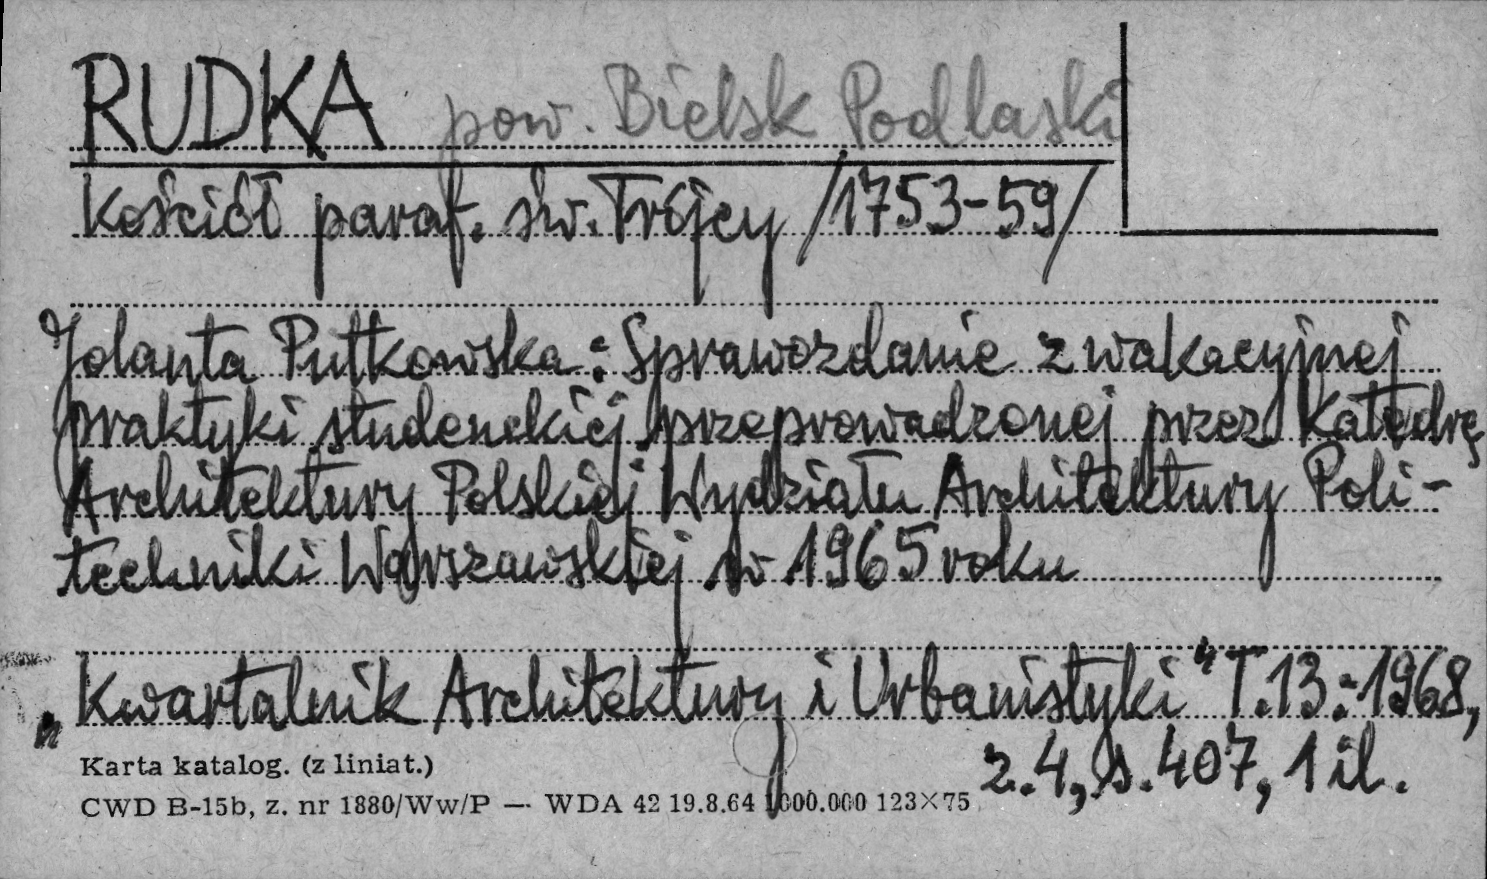 RUDKA pow. Bielsk Podlaski
Kościół paraf. św. Trójcy /1753-59/
Jolanta Putkowska: Sprawozdanie z wakacyjnej
praktyki studenckiej przeprowadzonej przez Katedrę
Architektury Polskiej Wydziału Architektury Poli-
techniki Warszawskiej w 1965 roku
„Kwartalnik Architektury i Urbanistyki" T.13:1968,
z.4, s.407, 1 il.
Karta katalog. (z liniat.)
CWD B-15b, z. nr 1880/Ww/P — WDA 42 19.8.64 1000.000 123×75